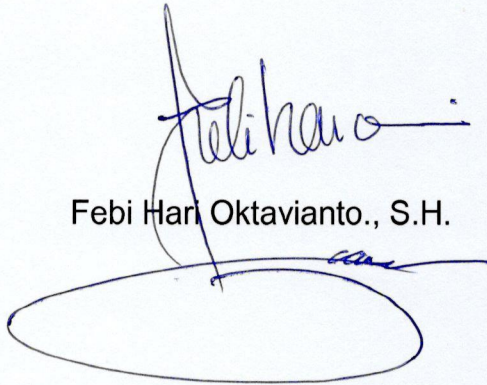 Febi Hari Oktavianto., S.H.